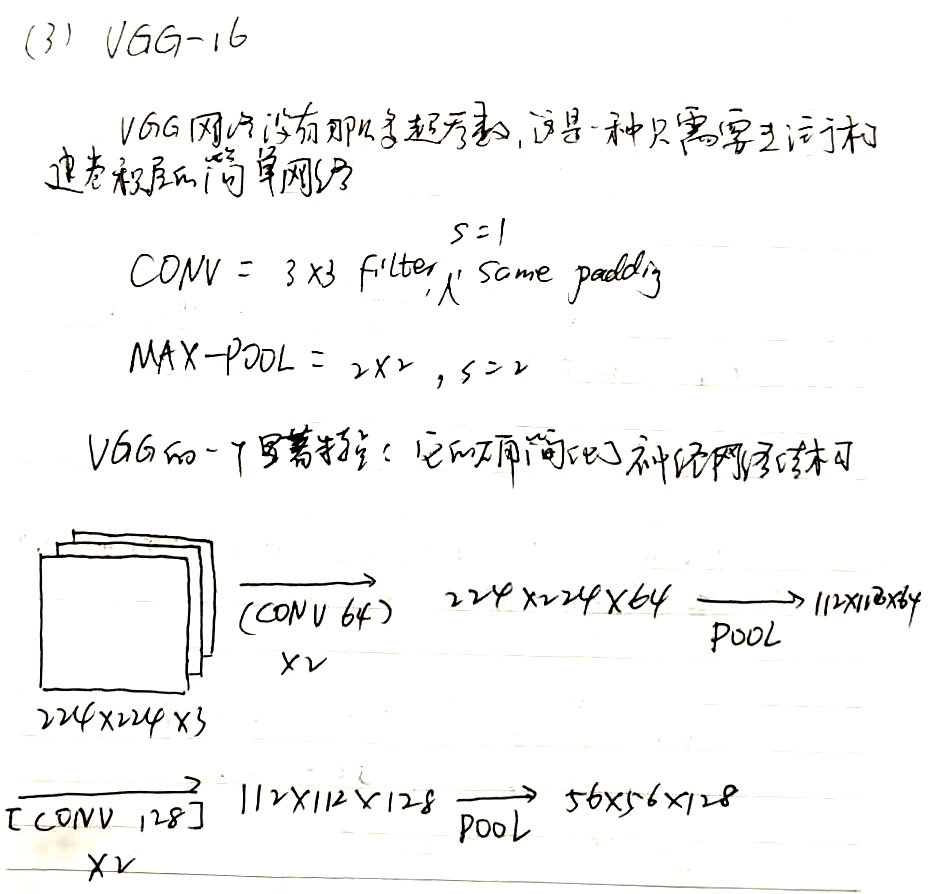 (3) VGG-16
VGG网络没有那么多超参数,这是一种只需要专注于构
建卷积层的简单网络
s=1
CONV = 3×3 filter, same padding
MAX-POOL = 2×2 , s=2
VGG的一个显著特点: 它的确简化了神经网络结构
(CONV 64)
×2
224×224×64
POOL
112×112×64
224×224×3
[CONV 128]
×2
112×112×128
POOL
56×56×128